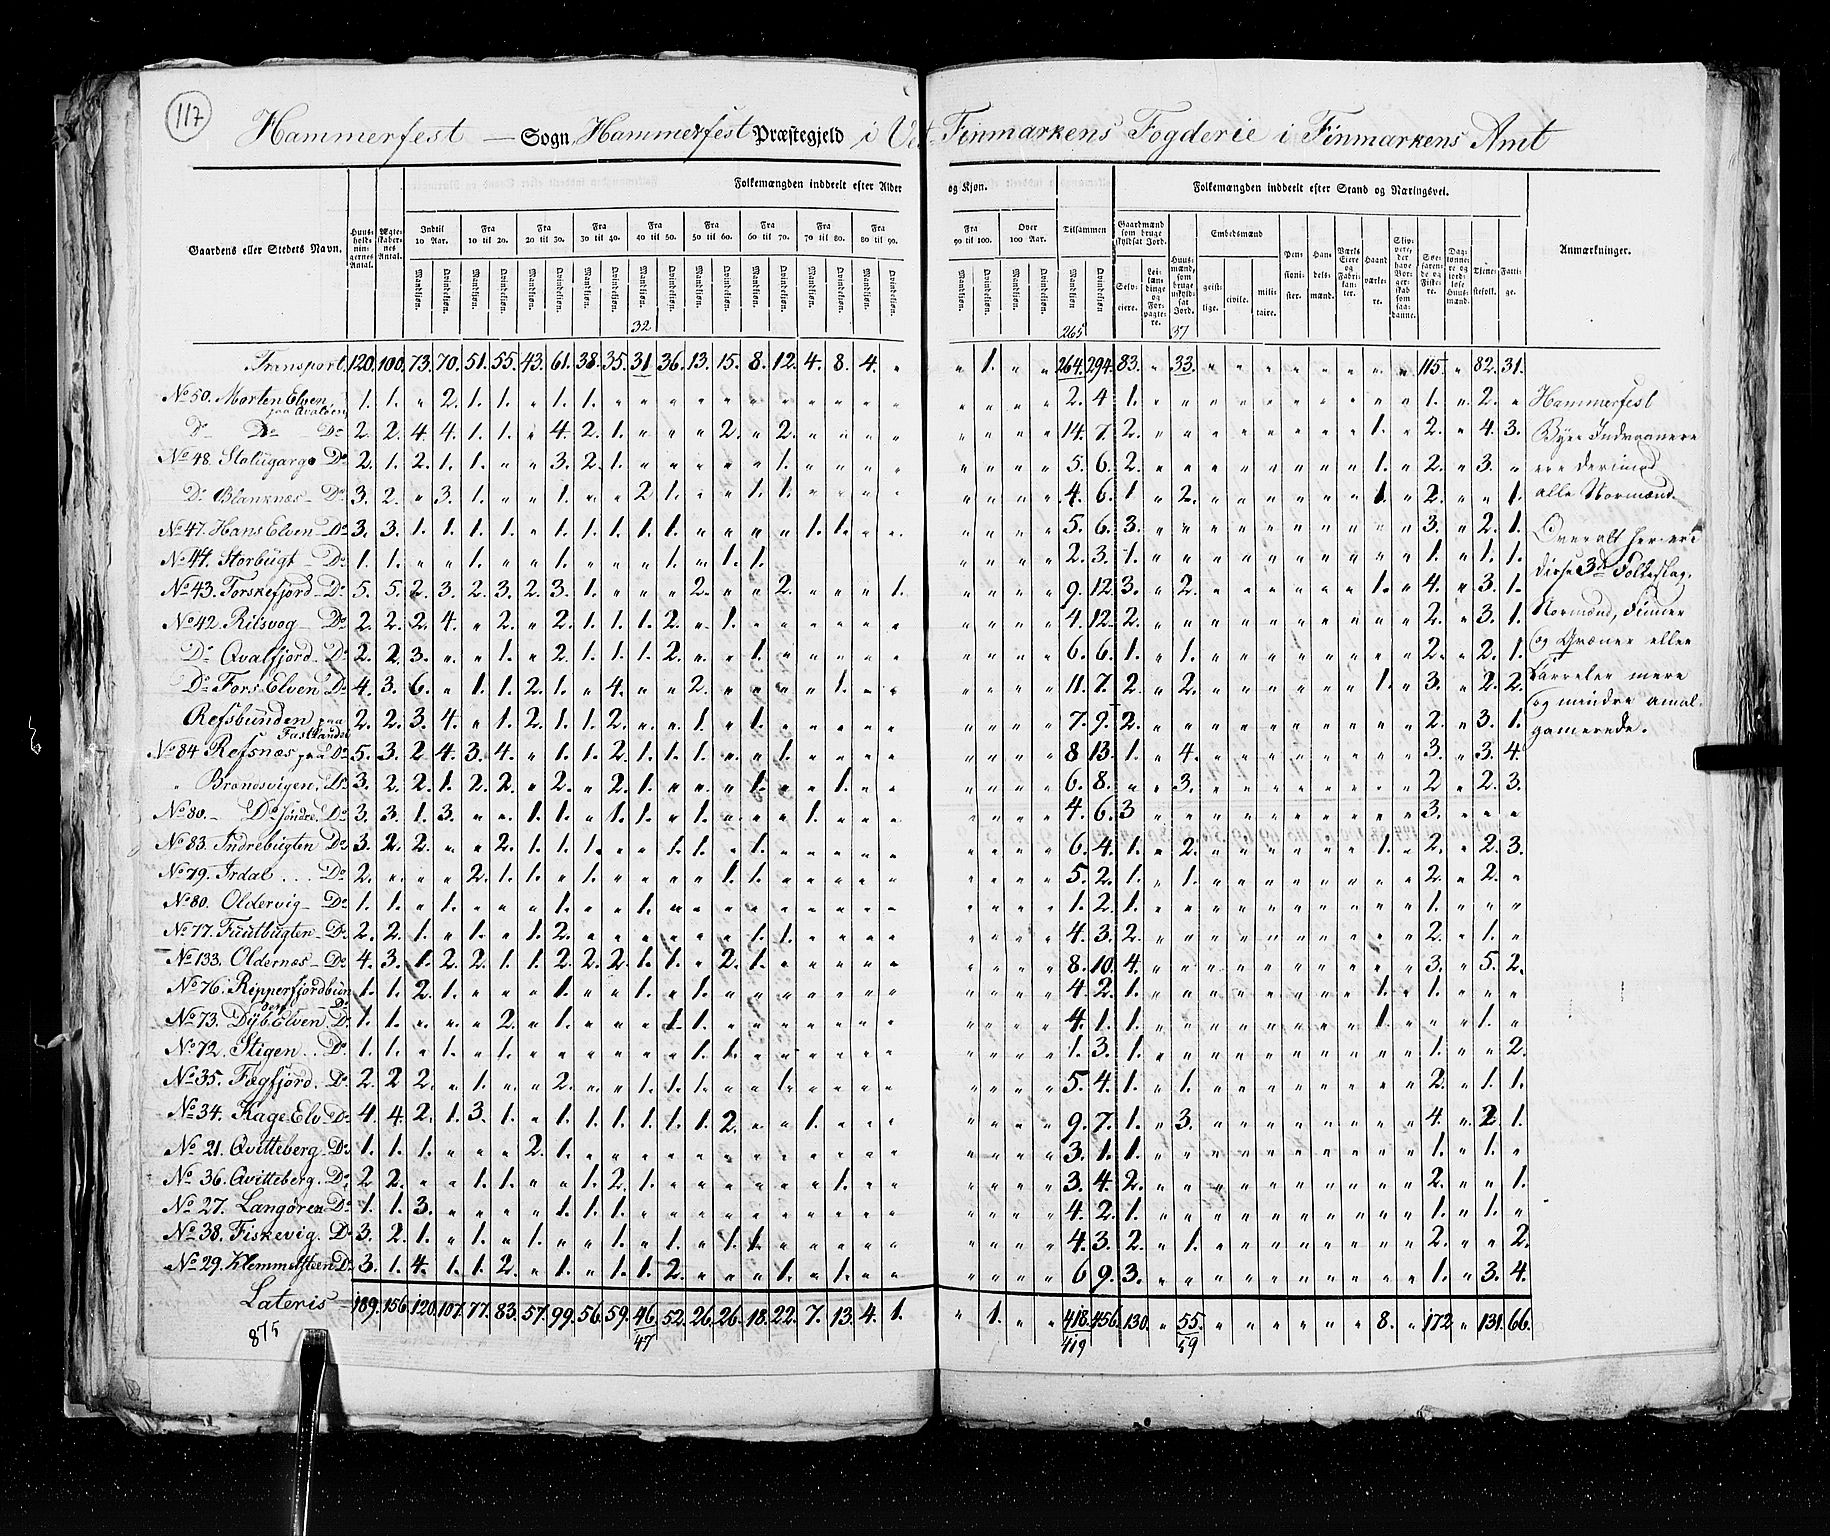 117
Hammerfest — Sogn Hammerfest Præstegjeld i Vest Finmarkens Fogderie i Finmarkens Amt
Folkemængden inddeelt efter Alder og Kjøn. Folkemængden inddeelt efter Stand og Næringsvei.
Gaardens eller Stedets Navn. Huusholdningernes Antal. Ægteskabernes Antal. Indtil 10 Aar. Fra 10 til 20. Fra 20 til 30. Fra 30 til 40. Fra 40 til 50. Fra 50 til 60. Fra 60 til 70. Fra 70 til 80. Fra 80 til 90. Fra 90 til 100. Over 100 Aar. Tilsammen Gaardmænd som bruge skyldsat Jord. Embedsmænd Anmærkninger.
Mandkjøn. Qvindekjøn.
geistlige. civile. militaire.
32 265 37
Transport 120. 100. 73. 70. 51. 55. 43. 61. 38. 35. 31. 36. 13. 15. 8. 12. 4. 8. 4. „ „ 1. „ „ 264. 294. 83. „ 33. „ „ „ „ „ „ „ „ 115. „ 82. 31.
No 50. Morten Elven paa Qvaløen 1. 1. „ 2. 1. 1. „ 1. 1. 2. 4. 1. 1. „ 2. „
Do Do Do 2. 2. 4. 4. 1. 1. „ 4. 2. 1. „ „ „ 2. „ 2. 14. 7. 2. 1. „ 2. „ 4. 3.
No 48. Do 2. 1. 2. 1. 1. „ „ 3. 2. 1. 1. 5. 6. 2. 1. „ 2. „ 3. „
Do Blanknæs Do 3. 2. „ 3. 1. „ „ 1. „ „ 2. 1. „ „ 1. 1. 4. 6. 1. „ 2. 1. „ 2. „ „ 1.
No 47. Hans Elven Do 3. 3. 1. 1. 1. 1. „ 1. 1. 1. 1. 1. 1. 1. 5. 6. 3. 3. „ 2. 1.
No 44. Storbugt Do 1. 1. „ „ 1. „ „ 1. „ „ „ 1. „ 1. 1. 2. 3. 1. 1. „ 1. 1.
No 43. Torskefjord Do 5. 5. 2. 3. 2. 3. 2. 3. 1. „ „ „ 2. „ „ 2. „ „ „ 1. 9. 12. 3. „ 2. 1. „ 4. „ 3. 1.
No 42. Ritsvog Do 2. 2. 2. 4. „ 2. „ 2. 1. 1. 1. 2. „ 1. 4. 12. 2. 2. „ 3. 1.
Do Qvalfjord Do 2. 2. 3. „ „ 1. „ 2. 1. 1. 1. 2. „ „ 1. 6. 6. 1. „ 1. 2. „ 2. 1.
Do Fors Elven Do 4. 3. 6. „ 1. 1. 2. 1. „ 4. „ „ 2. „ „ „ „ 1. 11. 7. 2. „ 2. 1. „ 3. „ 2. 2.
Refsbunden paa Fastlandet 2. 2. 3. 4. „ 1. 2. 1. 1. 2. „ „ 1. „ 1. 7. 9. 2. 2. „ 3. 1.
No 84 Refsnæs paa Do 5. 3. 2 4. 3. 4. „ 1. 1. 2. 1. 1. 1. „ „ 1. 8 13. 1. „ 4. 3. „ 3. 4.
„ Brandsvigen Do 3. 2. 2. 1. 2. 2. „ 2. „ 2. 1. „ „ „ 1. „ „ 1. 6. 8. „ „ 3. 2 „ 2. 3.
No 80. Do søndre. Do 3. 3. 1. 3. „ „ 1. 1. „ 1. 1. „ 1. „ „ „ 1. 4. 6. 3 3. „ „ „
No 83. Indrebugten Do 3. 2. 2. „ „ 2. 1. 1. 1. „ „ 1. 1. „ 1. 6. 4. 1. „ 2. 1. „ 2. „ 2. 3.
No 79. Irdal Do 2. „ „ „ 2. 1. 1. „ 1. „ „ „ „ 1. 1. 5. 2. 1. „ 1. 2. „ 2. „
No 80. Oldervig Do 1. 1. „ 1. „ „ „ 1. „ 1. 1. 2. 1. 1. „ „ „
No 77. Do 2. 2. 1. „ 1. „ 1. 2. „ „ „ „ „ „ 1. 1. 4. 3. 2. 2. „ 1. „
No 133. Oldernæs Do 4. 3. 1. 2. 2. 1. 1. 2. 2. 2. 1. 1. „ 2. 1. 8. 10. 4. 3. „ 5. 2.
No 76. Ripperfjordbun Do 1. 1. 2. 1. „ „ „ 1. „ „ 1. „ 1. 4. 2. 1. 1. „ 1. „ „ „
No 73. Dyb Elven Do 1. 1. „ „ „ 2. „ 1. „ „ „ 1. 1. 4. 1. 1. 1. „ „ „ 1. „
No 72. Stigen Do 1. 1. „ 1. „ 1. „ „ „ „ „ „ 1. 1. 1. 3. 1. 1. „ „ 2.
No 35. Fægfjord. Do 2. 2 2. „ 1. „ „ 2. „ „ 1. 1. 1. „ „ 1. 5. 4. 1. „ 1. 2. „ 1. 1.
No 34. Kage Elv Do 4. 4. 2. 1. 3. 1. „ 1. 1. 1. 1. 1. 1. 2. „ „ 1. 9. 7. 1. „ 3. 4. „ 2. 1.
No 21. Qvitteberg Do 1. 1. 1. „ „ „ 2. 1. 3. 1. 1. 1. „ 1. „
No 36. Qvitteberg. Do 2 2. „ „ 1. 1. „ „ 1. 2. 1. „ „ „ „ „ „ 1. 3. 4. 2. 2. „ „ 1.
No 27. Langøren Do 1. 1. 3. „ „ „ „ 1. 1. 1. 4. 2. 1. 1. „ 1. „
No 38. Fiskevig. Do 3. 2. 1. „ 1. „ 1. „ „ 1. „ 1. „ 1. 1. 4. 3. 2. „ 1. 2. „ „ 2.
No 29. Klemmetsteen Do 3. 1. 4. 1. 1. 2. „ 1. „ 1. 1. 2. „ „ „ 1. „ 1. 6 9. 3. 1. „ 3. 4.
Lateris 189. 156. 120. 107. 77. 83. 57. 99. 56. 59. 46 52. 26. 26. 18. 22. 7. 13. 4. 1. „ 1. „ „ 418. 456. 130. „ 55. „ „ „ „ „ „ 8. „ 172 „ 131. 66.
875 47 419 59
Hammerfest
Byes Indvaanere
ere derimod
alle Normænd.
Overalt her ere
disse 3de Folkeslag.
Normænd, Finner
og Qvæner eller
Karreler mere
og mindre amal-
gamerede.